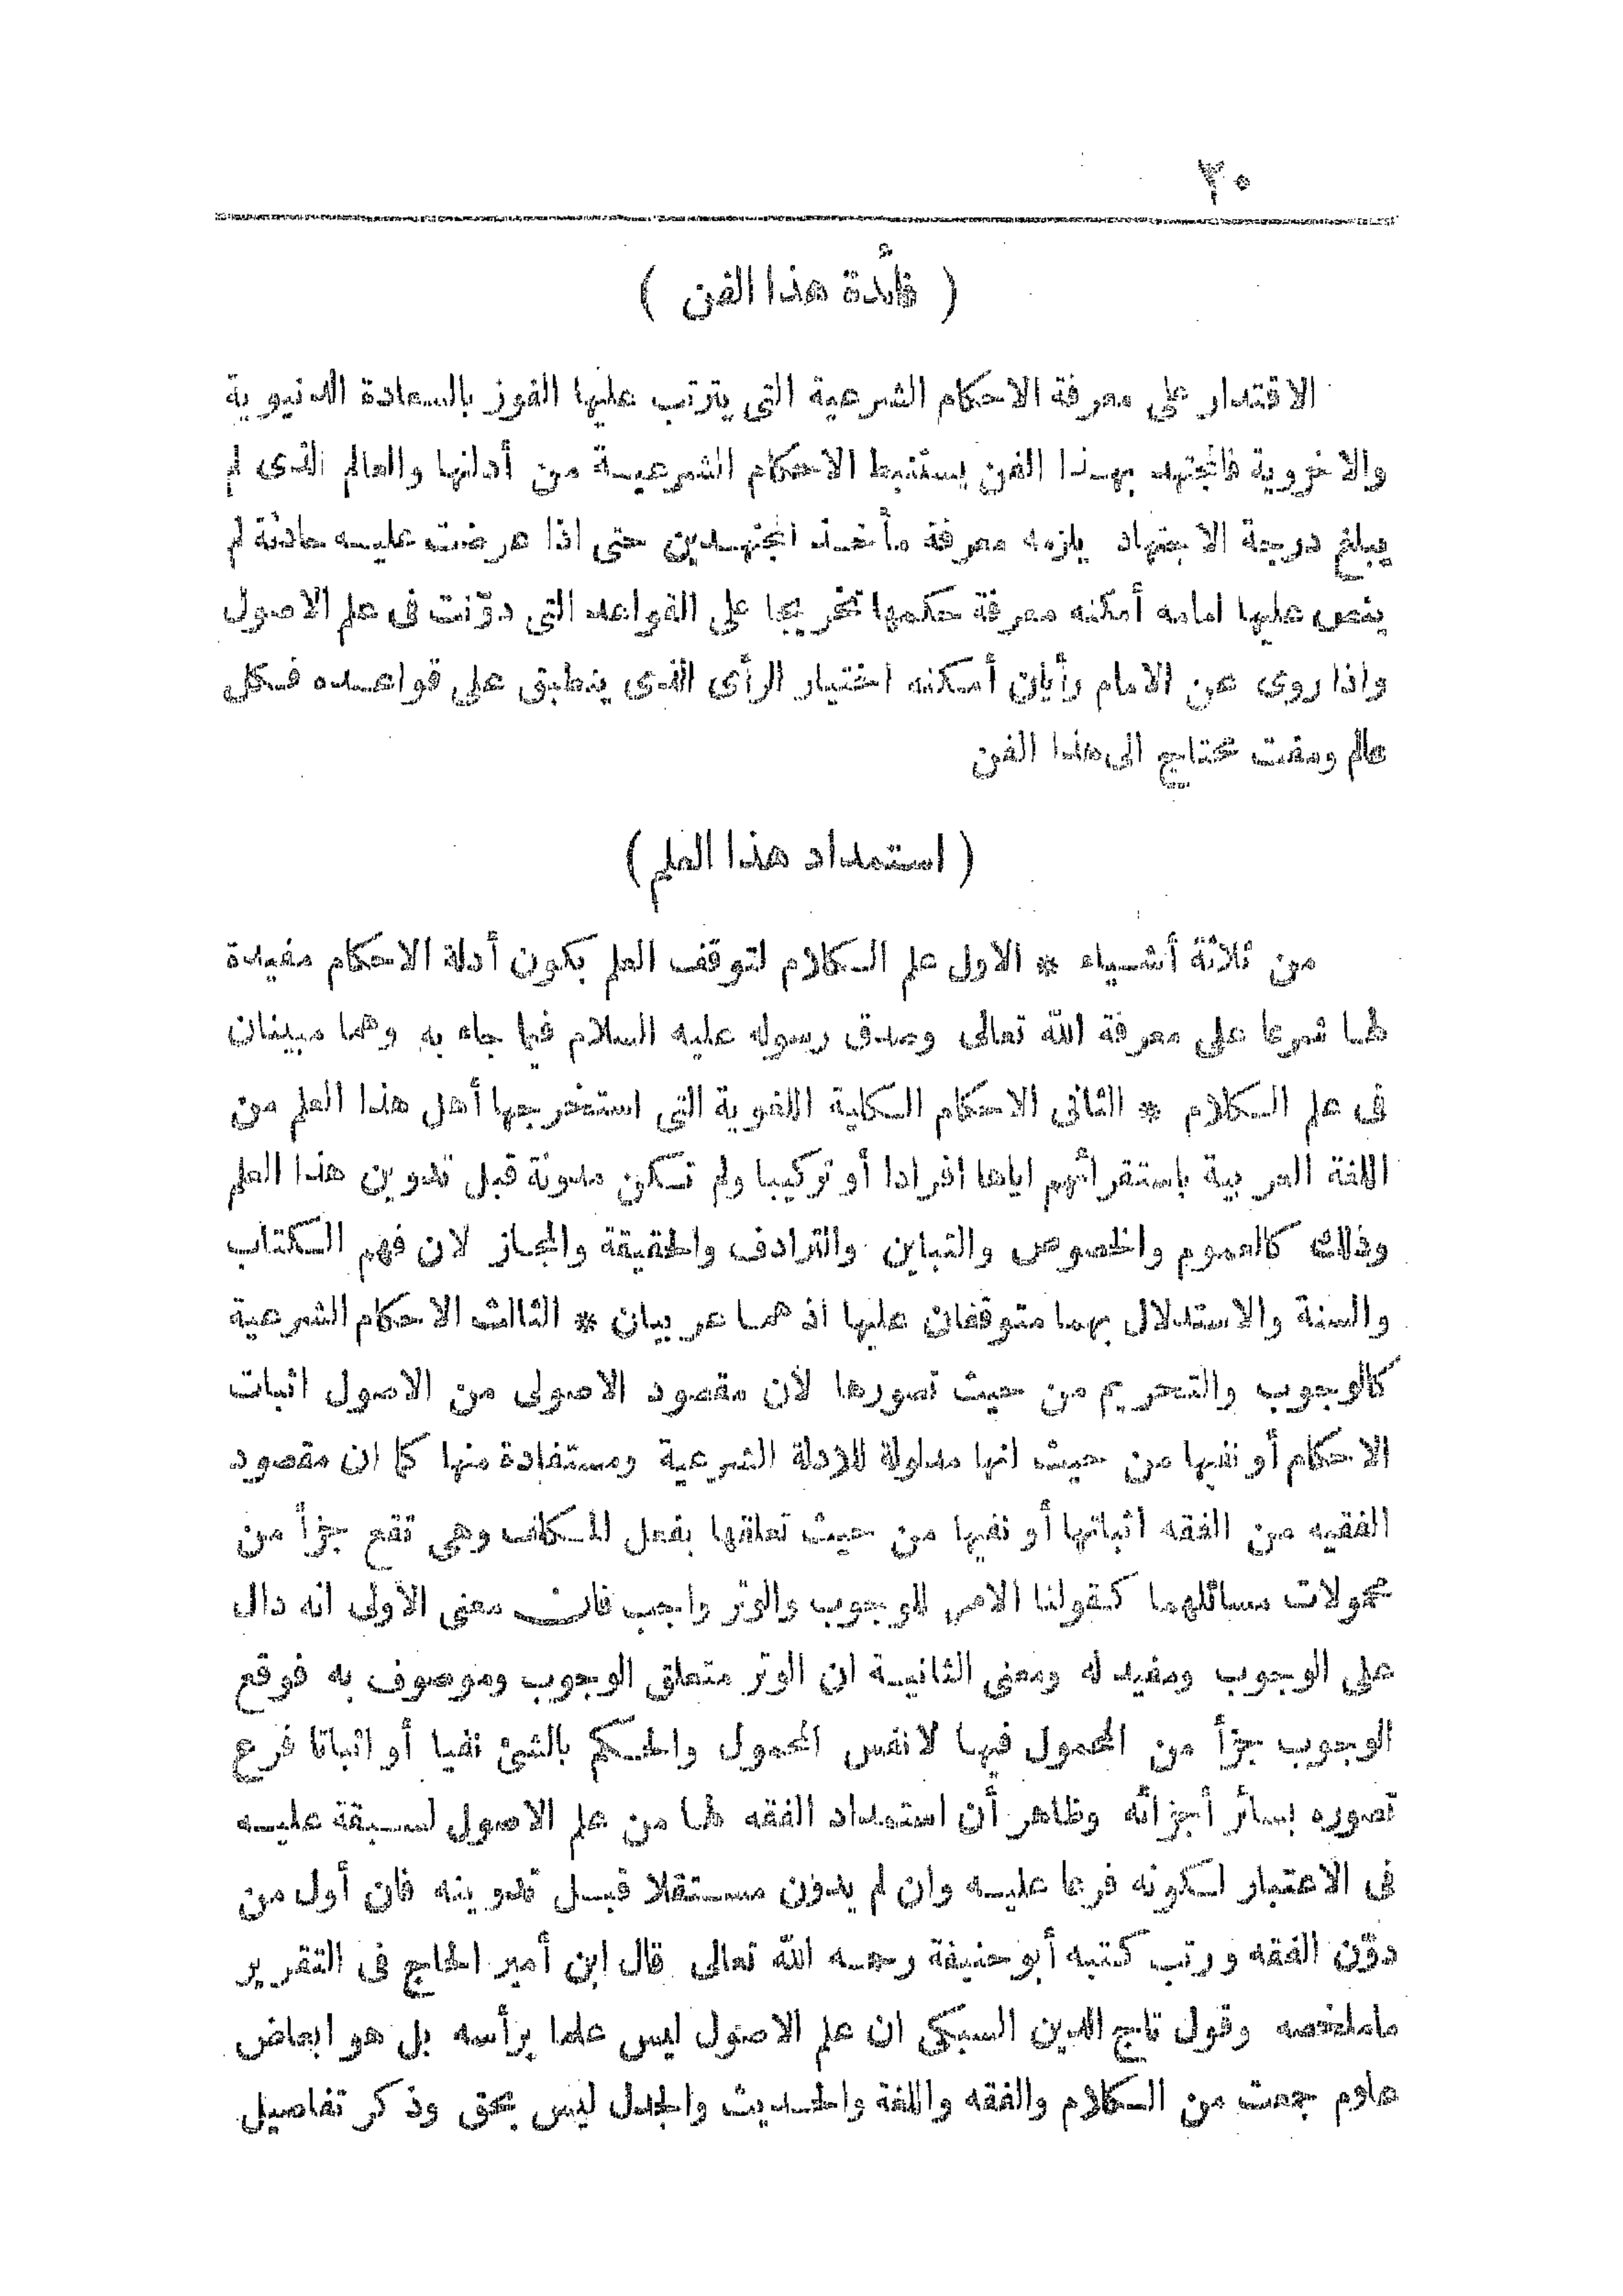 ٣٠
( فائدة هذا الفن )
الاقتدار على معرفة الاحكام الشرعية التى يترتب عليها الفوز بالسعادة الدنيوية
والاخروية فالمجتهد بهذا الفن يستنبط الاحكام الشرعية من أدلتها والعالم الذى لم
يبلغ درجة الاجتهاد يلزمه معرفة مأخذ المجتهدين حتى اذا عرضت عليه حادثة لم
ينص عليها امامه أمكنه معرفة حكمها تخريجا على القواعد التى دوّنت فى علم الاصول
واذا روى عن الامام رأيان أمكنه اختيار الرأى الذى ينطبق على قواعده فكل
عالم ومفت محتاج الى هذا الفن
( استمداد هذا العلم )
من ثلاثة أشياء * الاول علم الكلام لتوقف العلم بكون أدلة الاحكام مفيدة
لها شرعا على معرفة الله تعالى وصدق رسوله عليه السلام فيما جاء به وهما مبينان
فى علم الكلام * الثانى الاحكام الكلية اللغوية التى استخرجها أهل هذا العلم من
اللغة العربية باستقرائهم اياها افرادا أو تركيبا ولم تكن مدونة قبل تدوين هذا العلم
وذلك كالعموم والخصوص والتباين والترادف والحقيقة والمجاز لان فهم الكتاب
والسنة والاستدلال بهما متوقفان عليها اذ هما عربيان * الثالث الاحكام الشرعية
كالوجوب والتحريم من حيث تصورها لأن مقصود الاصولى من الاصول اثبات
الاحكام أو نفيها من حيث انها مدلولة للادلة الشرعية ومستفادة منها كما ان مقصود
الفقيه من الفقه اثباتها أو نفيها من حيث تعلقها بفعل المكلف وهى تقع جزأ من
محمولات مسائلهما كقولنا الامر للوجوب والوتر واجب فان معنى الأولى انه دال
على الوجوب ومفيد له ومعنى الثانية ان الوتر متعلق الوجوب وموصوف به فوقع
الوجوب جزأ من المحمول فيها لا نفس المحمول والحكم بالشئ نفيا أو اثباتا فرع
تصوره بسائر أجزائه وظاهر أن استمداد الفقه لها من علم الاصول لسبقة عليه
فى الاعتبار لكونه فرعا عليه وان لم يدون مستقلا قبل تدوينه فان أول من
دوّن الفقه ورتب كتبه أبو حنيفة رحمه الله تعالى قال ابن أمير الحاج فى التقرير
ماملخصه وقول تاج الدين السبكى ان علم الاصول ليس علما برأسه بل هو ابعاض
علوم جمعت من الكلام والفقه واللغة والحديث والجدل ليس بحق وذكر تفاصيل